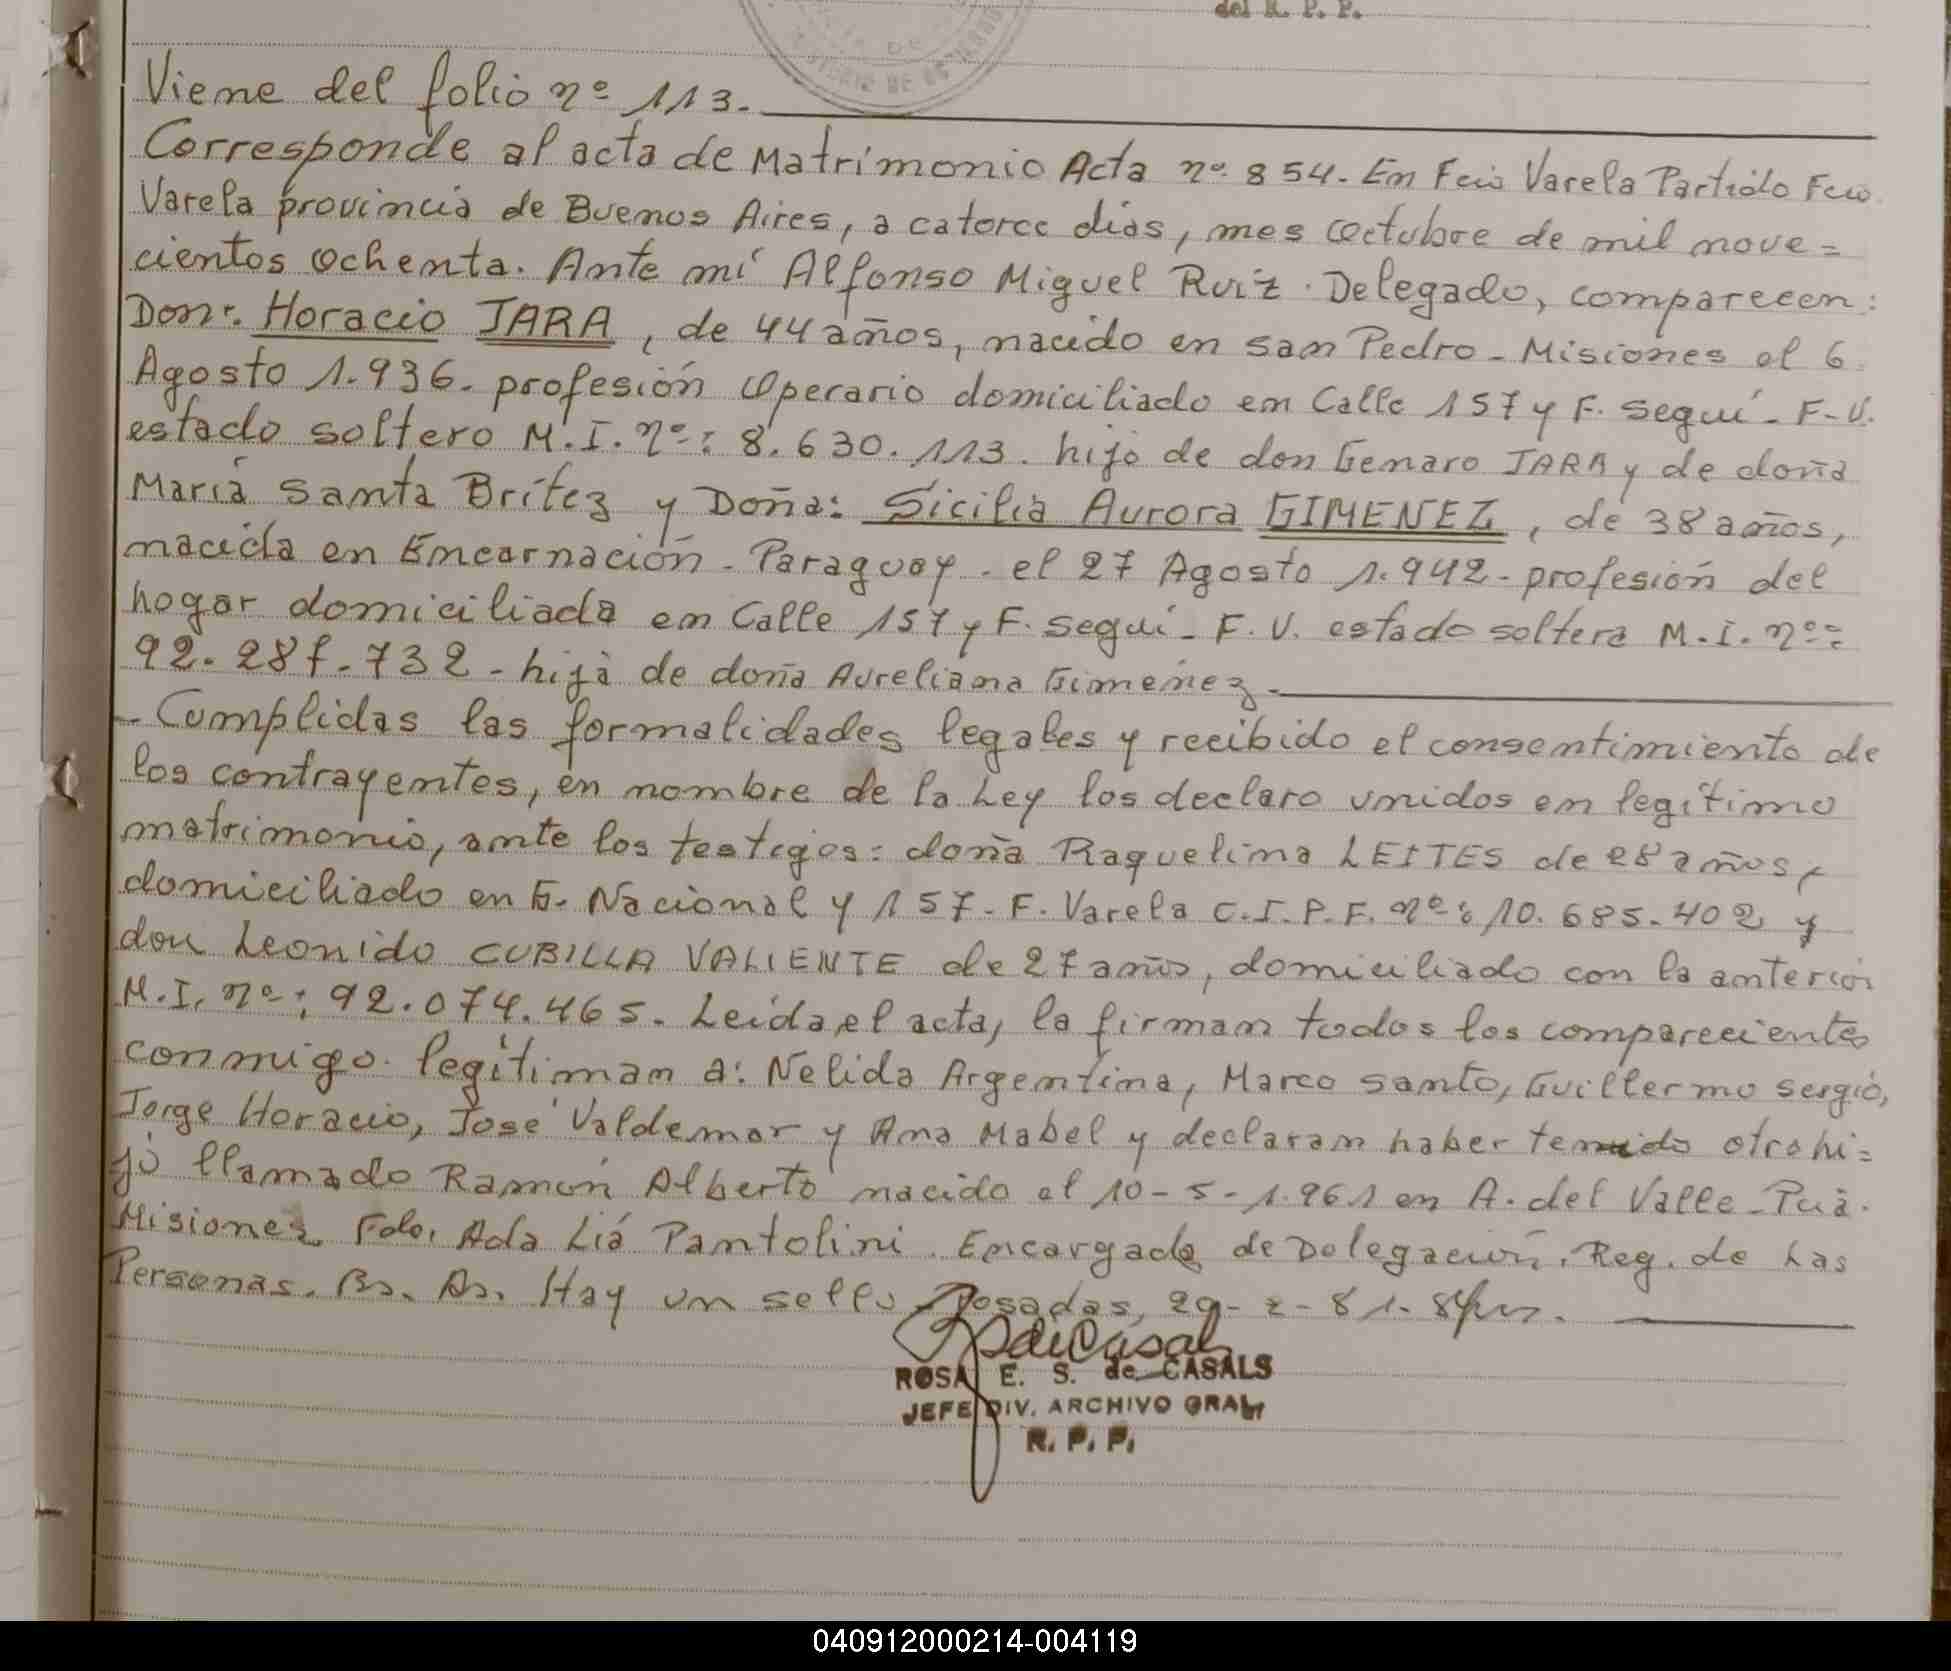 del R. P. P.
Viene del folio nº 113.
Corresponde al acta de Matrimonio Acta nº 854. En Fcio Varela Partido Fcio.
Varela provincia de Buenos Aires, a catorce dias, mes octubre de mil nove=
cientos ochenta. Ante mi Alfonso Miguel Ruiz. Delegado, comparecen:
Don: Horacio JARA, de 44 años, nacido en San Pedro - Misiones el 6
Agosto 1.936. profesión operario domiciliado en Calle 157 y F. Seguí - F-V.
estado soltero M.I. nº: 8.630.113. hijo de don Genaro JARA y de doña
María Santa Brítez y Doña: Sicilia Aurora GIMENEZ, de 38 años,
nacida en Encarnación - Paraguay - el 27 Agosto 1.942 - profesión del
hogar domiciliada en Calle 157 y F. Seguí - F. V. estado soltera M.I. nº=
92. .732 - hija de doña Aureliana Gimenez.
- Cumplidas las formalidades legales y recibido el consentimiento de
los contrayentes, en nombre de la Ley los declaro unidos en legítimo
matrimonio, ante los testigos: doña Raquelina LEITES de 28 años,
domiciliado en G. Nacional y 157 - F. Varela C.I.P.F. nº: 10.685.402 y
don Leonido CUBILLA VALIENTE de 27 años, domiciliado con la anterior
M.I. nº: 92.074.465. Leida el acta, la firman todos los comparecientes
conmigo. legítiman a: Nelida Argentina, Marco Santo, Guillermo Sergio,
Jorge Horacio, José Valdemar y Ana Mabel y declaran haber tenido otro hi=
jo llamado Ramón Alberto nacido el 10-5-1.961 en A. del Valle - Pcia.
Misiones. Fdo. Ada Lía Pantolini. Encargada de Delegación. Reg. de Las
Personas. Bs. As. Hay un sello Posadas, 29-2-81.
ROSA E. S. de CASALS
JEFE DIV. ARCHIVO GRAL
R. P. P.
040912000214-004119